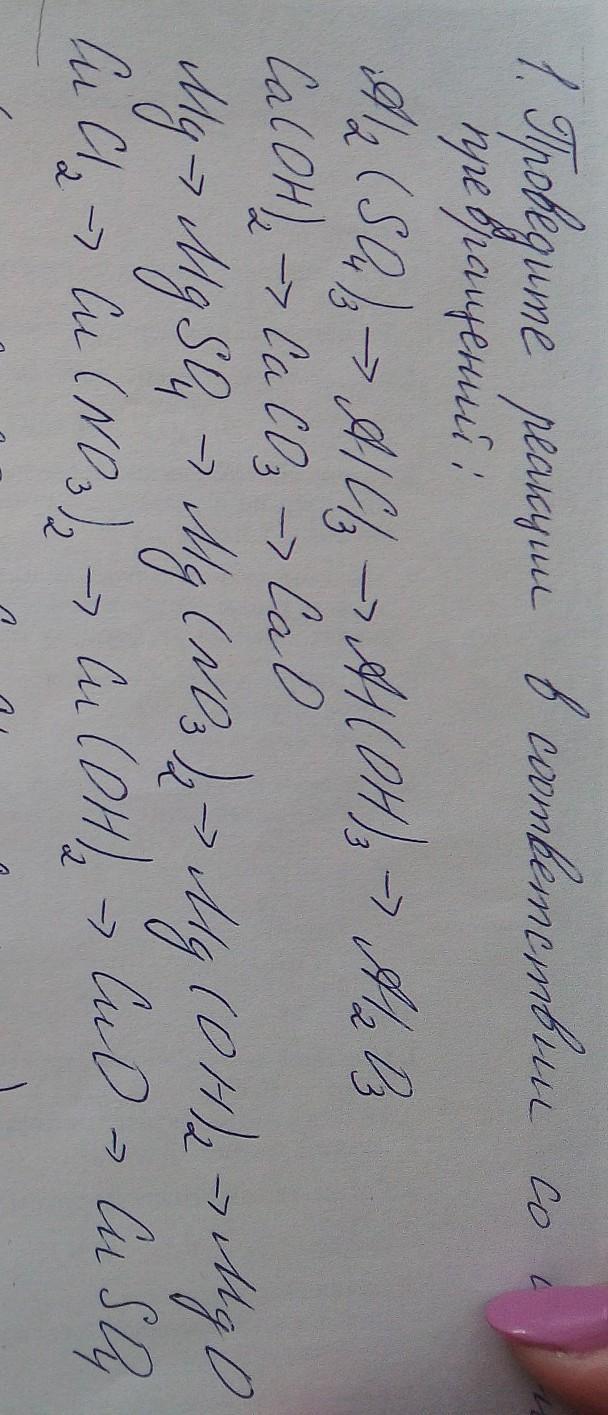 1. Проведите реакции в соответствии со
превращений:
Al₂(SO₄)₃ → AlCl₃ → Al(OH)₃ → Al₂O₃
Ca(OH)₂ → CaCO₃ → CaO
Mg → MgSO₄ → Mg(NO₃)₂ → Mg(OH)₂ → MgO
CuCl₂ → Cu(NO₃)₂ → Cu(OH)₂ → CuO → CuSO₄